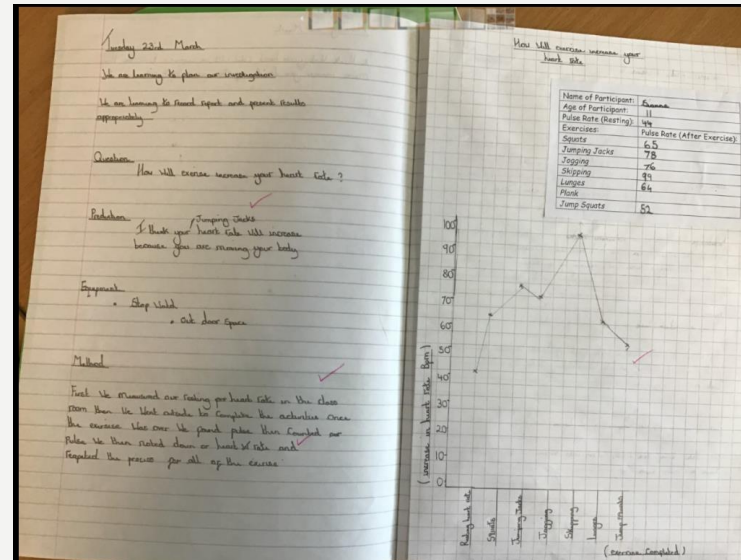 Tuesday 23rd March
We are learning to plan our investigation
We are learning to record report and present results
appropriately.
Question
How will exercise increase your heart rate ?
Prediction
Jumping Jacks
I think your heart rate will increase
because you are moving your body
Equipment
• Stop Watch
• Out door space
Method
First We measured our resting heart rate in the class
room then We Went outside to complete the activities Once
the exercise Was over We found pulse then Counted our
Pulse We then noted down or heart rate and
repeated the process for all of the exercise
How Will exercise increase your
heart rate
Name of Participant:
Age of Participant: 11
Pulse Rate (Resting): 44
Exercises: Pulse Rate (After Exercise):
Squats 65
Jumping Jacks 78
Jogging 76
Skipping 99
Lunges 64
Plank
Jump Squats 52
100
90
80
70
60
50
40
30
20
10
0
(increase in heart rate Bpm)
Squats
Jumping Jacks
Jogging
Skipping
Lunges
Jump squats
(exercise Completed)